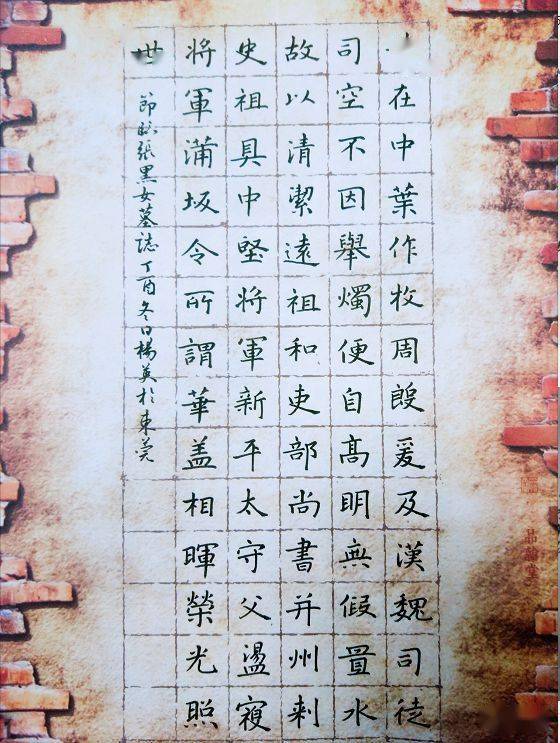 在中葉作牧周殷爰及漢魏司徒
司空不因舉燭便自髙明無假置水
故以清潔遠祖和吏部尚書并州刺
史祖具中堅將軍新平太守父盪寇
將軍蒲坂令所謂華盖相暉榮光照
世
節臨張黑女墓誌丁酉冬日楊英於東莞